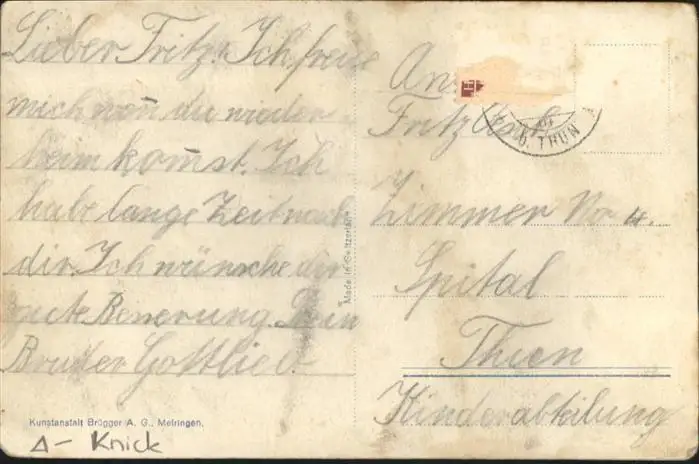 Lieber Fritz! Ich freue
mich wen̄ du wieder
heim kom̄st. Ich
habe lange Zeit nach
dir. Ich wünsche dir
gute Besserung. Dein
Bruder Gottlieb
An
Fritz
Zimmer No 4.
Spital
Thun
Kinderabteilung
THUN
Made in Switzerland
Kunstanstalt Brügger A. G., Meiringen.
Δ- Knick